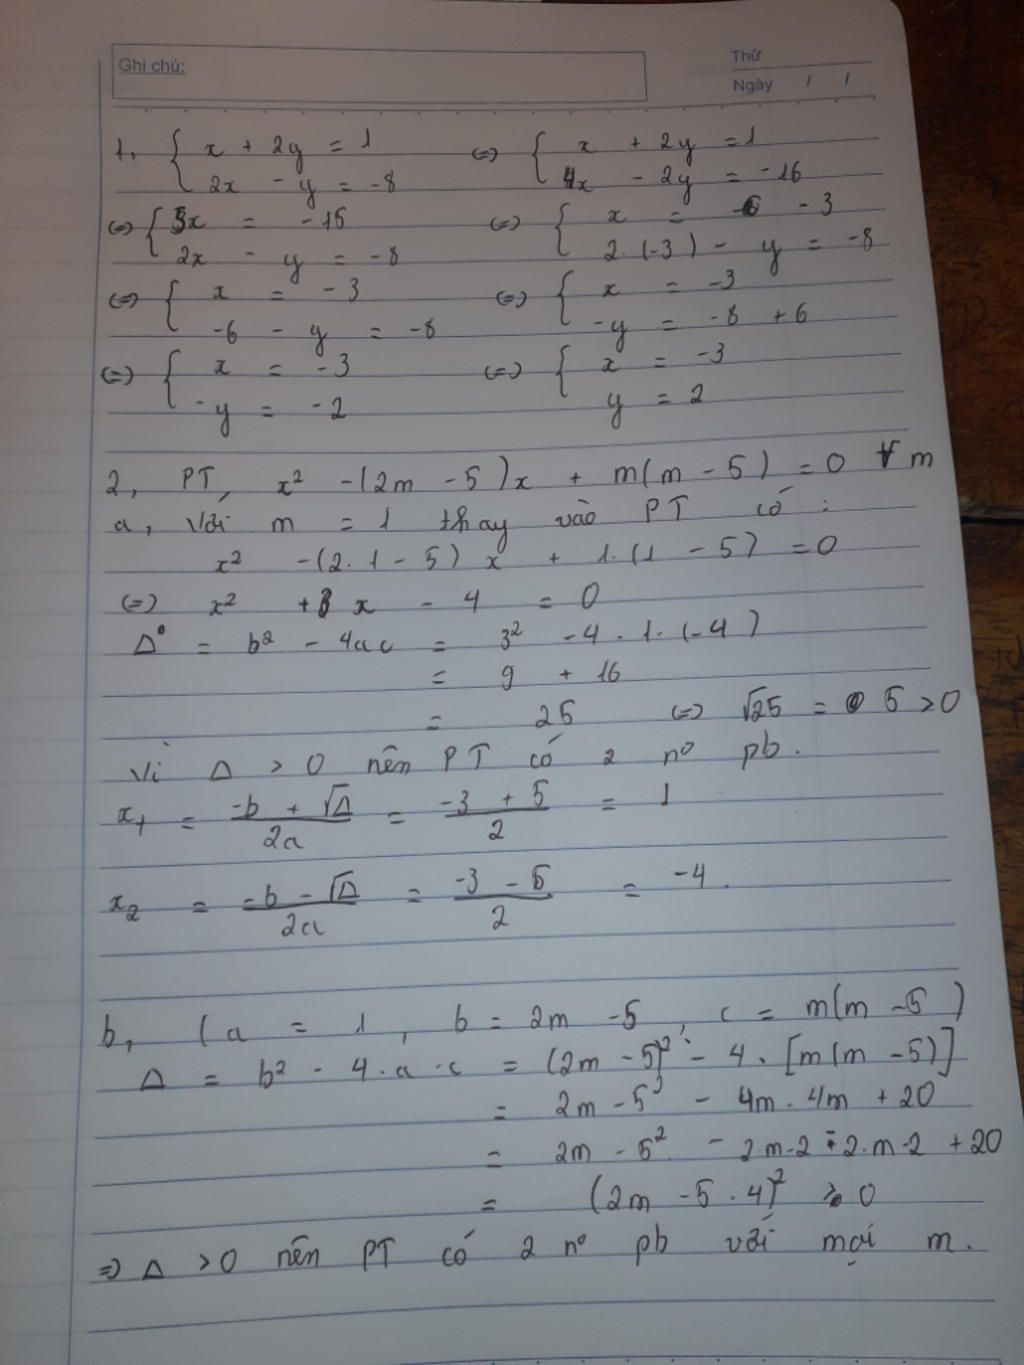 Ghi chú:
Thứ
Ngày / /
1, { x + 2y = 1 (=) { x + 2y = 1
2x - y = -8 4x - 2y = -16
(=) { 5x = -15 (=) { x = -3
2x - y = -8 2.(-3) - y = -8
(=) { x = -3 (=) { x = -3
-6 - y = -8 -y = -8 + 6
(=) { x = -3 (=) { x = -3
-y = -2 y = 2
2, PT, x² -(2m - 5)x + m(m - 5) = 0 ∀ m
a, Với m = 1 thay vào PT có :
x² -(2.1 - 5) x + 1.(1 - 5) = 0
(=) x² + 3 x - 4 = 0
Δ = b² - 4ac = 3² - 4.1.(-4)
= 9 + 16
= 25 (=) √25 = 5 > 0
Vì Δ > 0 nên PT có 2 nº pb.
x₁ = (-b + √Δ)/2a = (-3 + 5)/2 = 1
x₂ = (-b - √Δ)/2a = (-3 - 5)/2 = -4.
b, (a = 1, b = 2m - 5, c = m(m - 5)
Δ = b² - 4.a.c = (2m - 5)² - 4.[m(m - 5)]
= 2m - 5² - 4m . 4m + 20
= 2m - 5² - 2.m.2 - 2.m.2 + 20
= (2m - 5 . 4)² ≥ 0
=) Δ > 0 nên PT có 2 nº pb với mọi m.